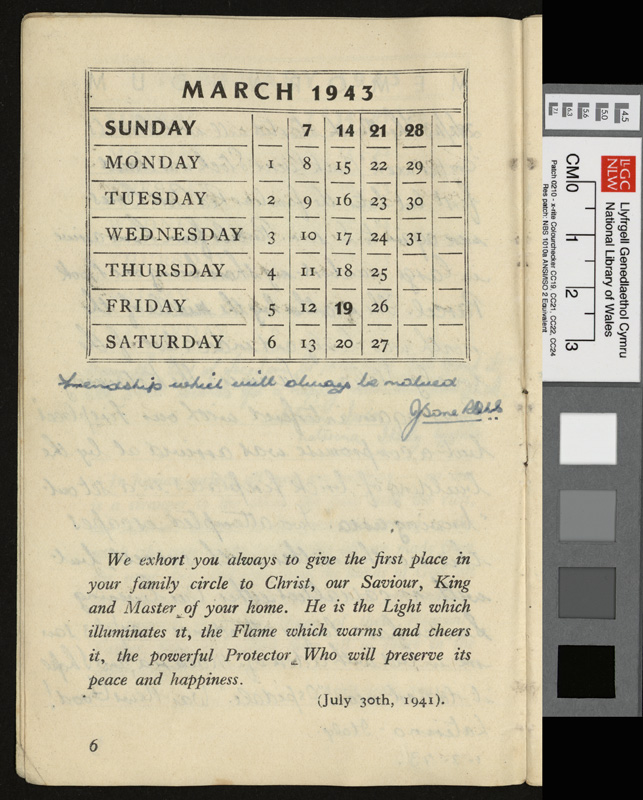 MARCH 1943
SUNDAY 7 14 21 28
MONDAY 1 8 15 22 29
TUESDAY 2 9 16 23 30
WEDNESDAY 3 10 17 24 31
THURSDAY 4 11 18 25
FRIDAY 5 12 19 26
SATURDAY 6 13 20 27
Friendship which will always be valued
We exhort you always to give the first place in
your family circle to Christ, our Saviour, King
and Master of your home. He is the Light which
illuminates it, the Flame which warms and cheers
it, the powerful Protector Who will preserve its
peace and happiness.
(July 30th, 1941).
6
LlGC
NLW
Llyfrgell Genedlaethol Cymru
National Library of Wales
CM 0 1 2 3
Patch 0210 - x-rite Colourchecker CC19, CC21, CC22, CC24
Res patch: NBS 1010a ANSI/ISO 2 Equivalent
7.1 6.3 5.6 5.0 4.5